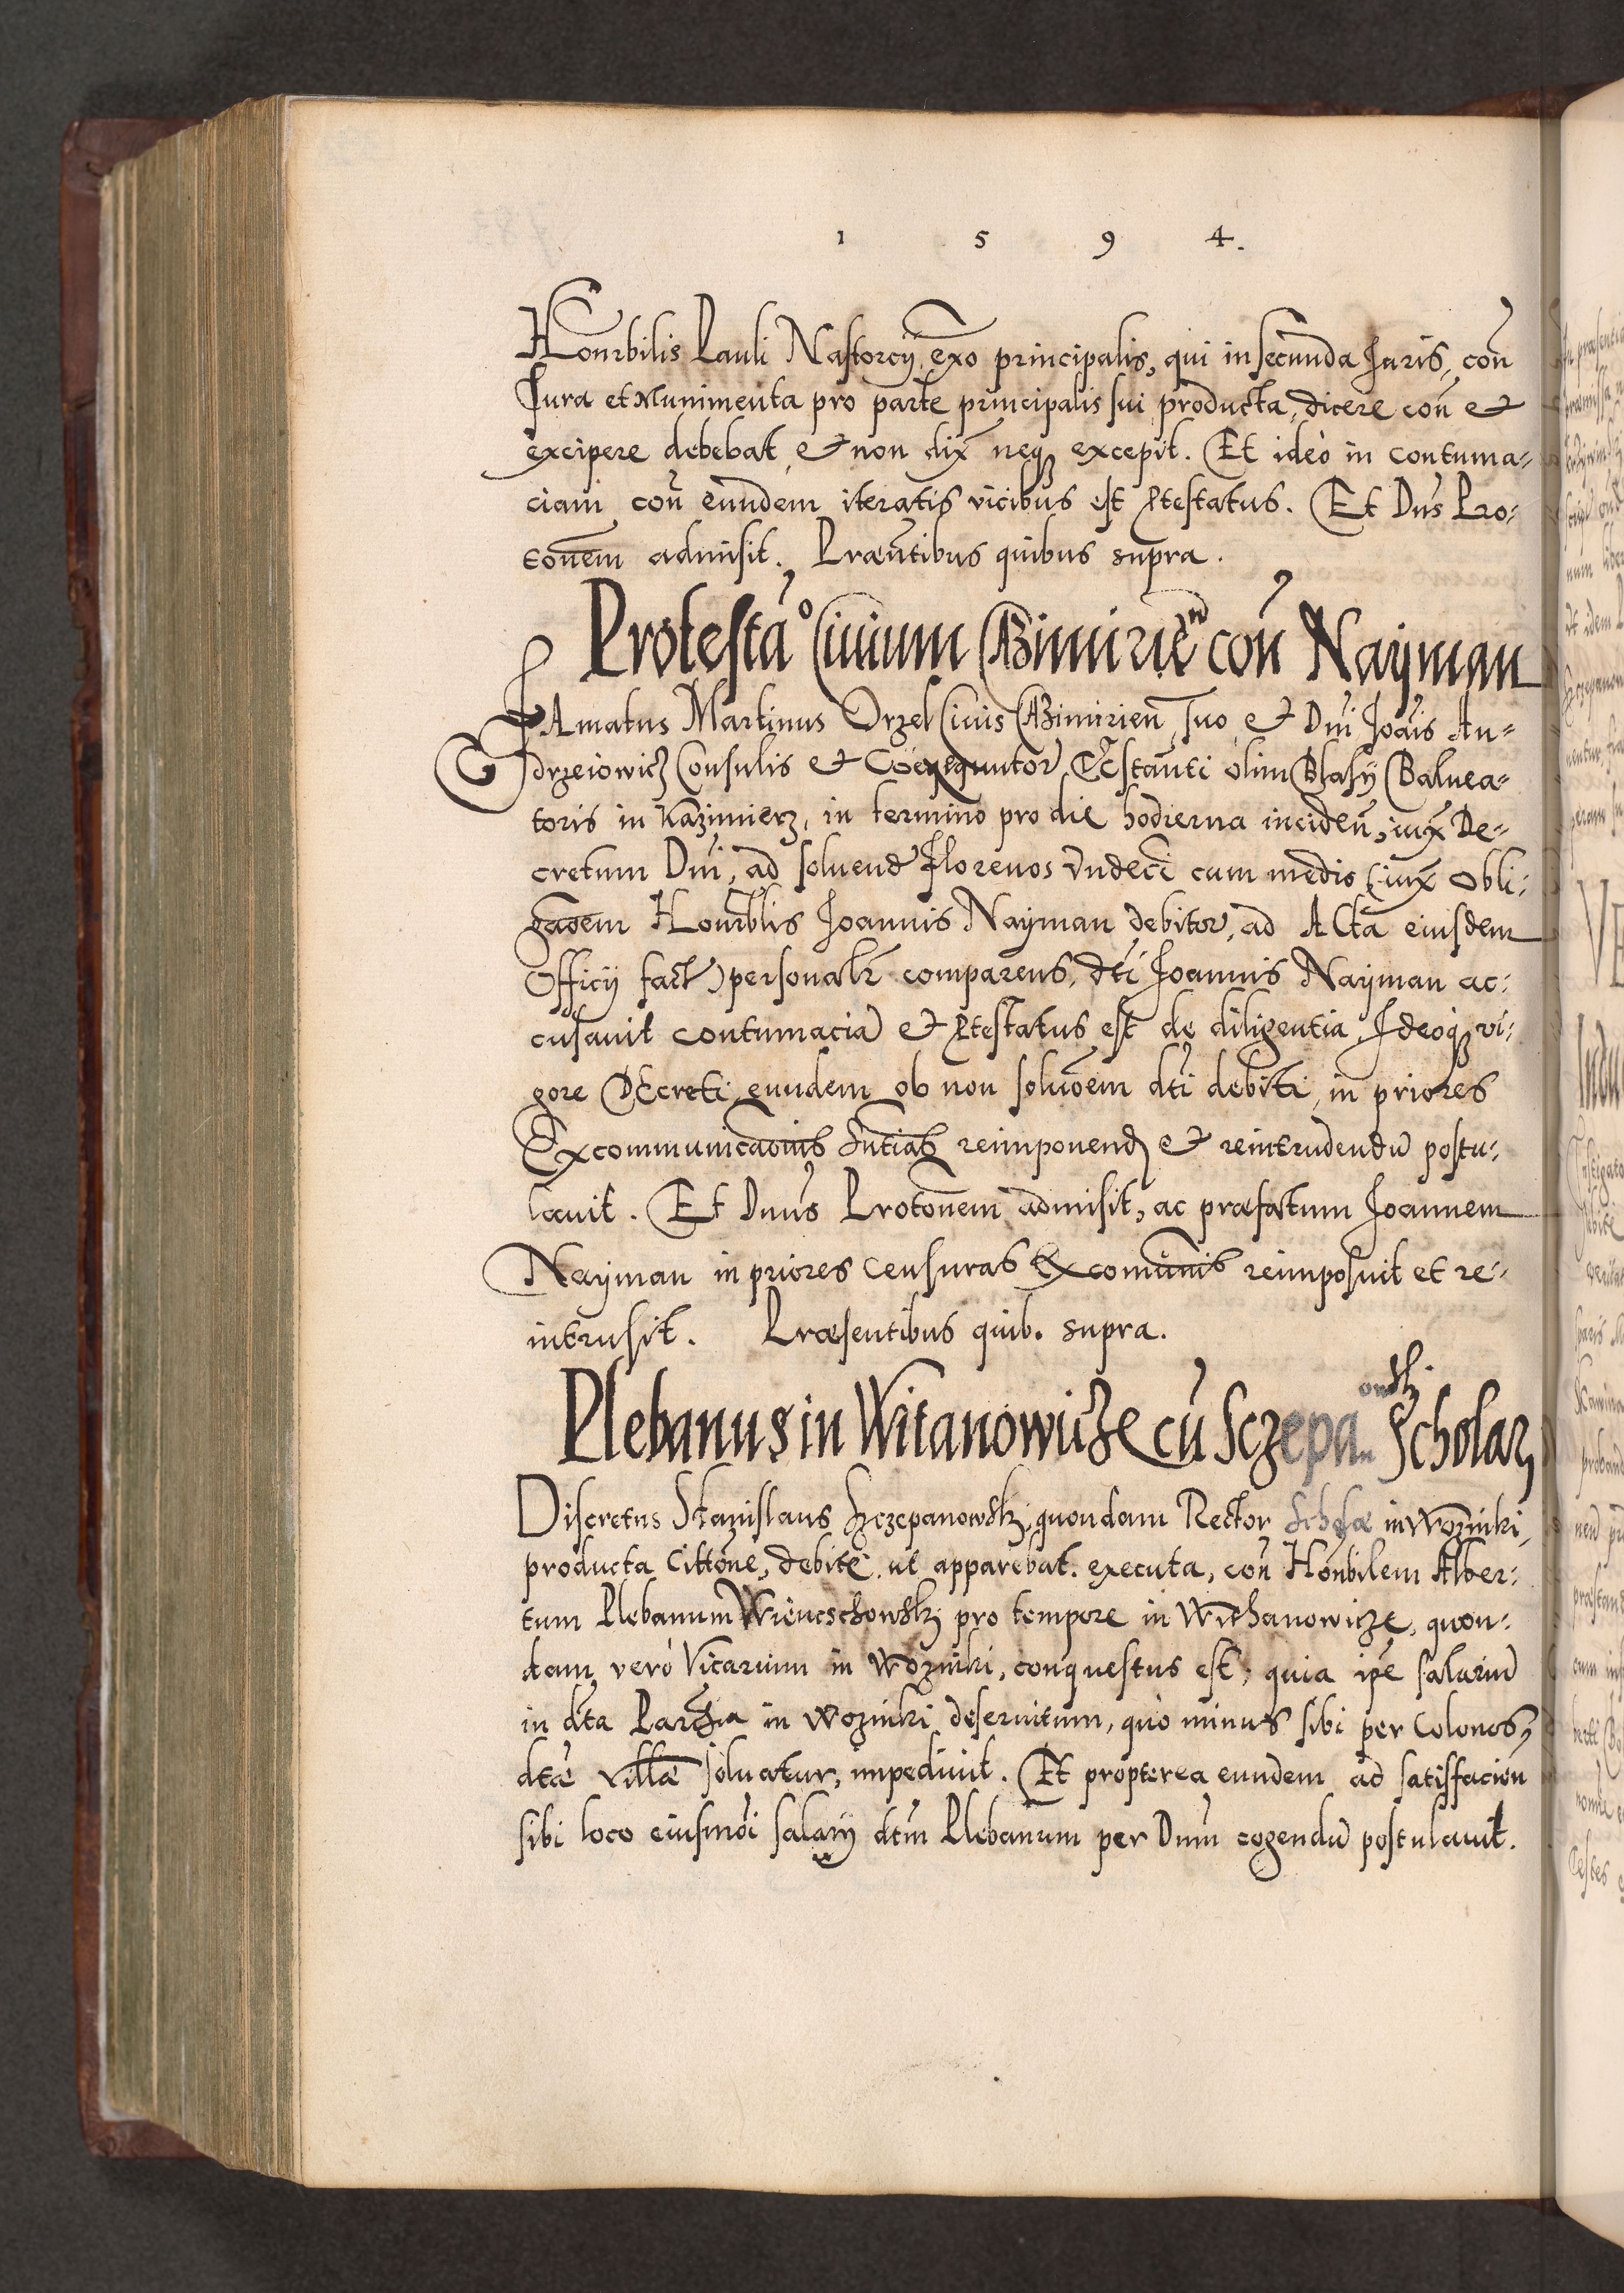 1 5 9 4.
Honrbilis Pauli Nastorcij, exo principalis, qui in secunda Iuris, con
Iura et Munimenta pro parte principalis sui producta, dicere con et
excipere debebat, et non dix neq excepit. Et ideo in contuma=
ciam con eundem iteratis vicibus est Ptestatus. Et Dns Pro:
tonem admisit. Praentibus quibus supra.
Protestao Ciuium Cazimirien con Nayman
FAmatus Martinus Orzel Ciuis Cazimirien, suo et Dni Ioais An=
drzeiowicz Consulis et Coexequutor Testanti olim Blasij Balnea=
toris in Kazimierz, in termino pro die hodierna inciden, iux De=
cretum Dni, ad soluend Florenos vndeci cum medio (iux Obli:
gaoem Honrblis Ioannis Nayman debitor, ad Acta eiusdem
Officij fact) personalr comparens, dti Ioannis Nayman ac:
cusauit contumacia et Ptestatus est de diligentia, Ideoq vi:
gore Decreti, eundem ob non soluoem dti debiti, in priores
Excommunicaonis Sntias reimponend et reintrudendu postu:
lauit. Et Dnus Protonem admisit, ac praefatum Ioannem
Nayman in priores Censuras Excomunis reimposuit et re:
intrusit. Praesentibus quib. supra.
Plebanus in Witanowicze cu Sczepa onsk Scholar
Discretus Stanislaus Szczepanowsky, quondam Rector Scholae in Wozniki,
producta Cittone, debite, ut apparebat. executa, con Honbilem Alber:
tum Plebanum Wiencschowsky pro tempore in Withanowicze, quon:
dam vero Vicarium in Wozniki, conquestus est, quia ipe salariu
in dta Parochia in Wozniki deseruitum, quo minus sibi per Colonos
dtae villae soluatur, impediuit. Et propterea eundem ad satisfacien
sibi loco eiusmoi salarij dtm Plebanum per Dnm cogendu postulauit.